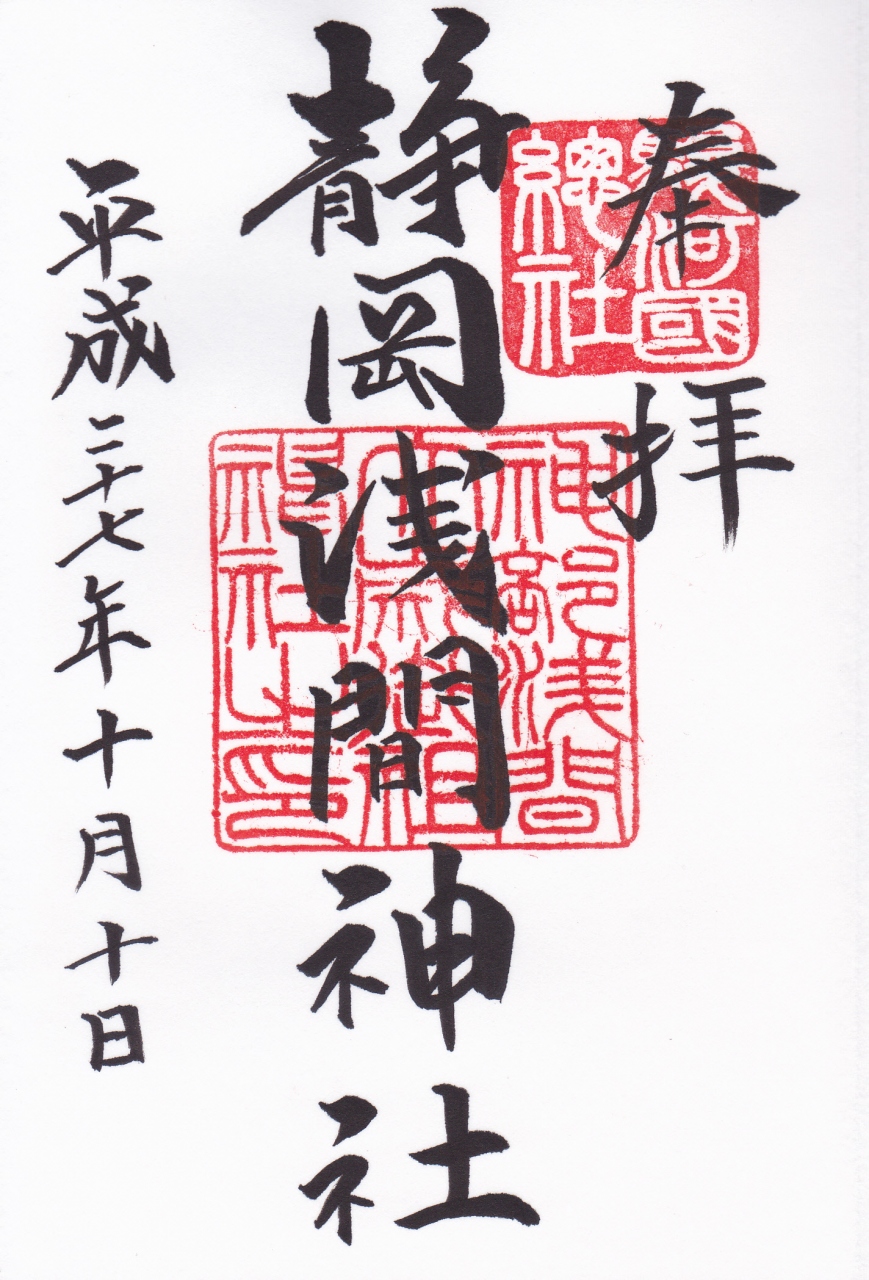 奉拝
駿河國
總社
静岡浅間神社
神部浅間
大歳御祖
神社之印
平成二十七年十月十日